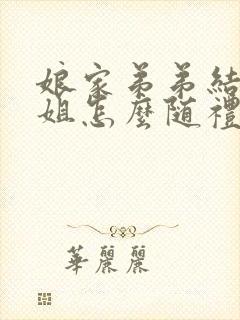 娘家弟弟結
姐怎麼随禮
華麗麗